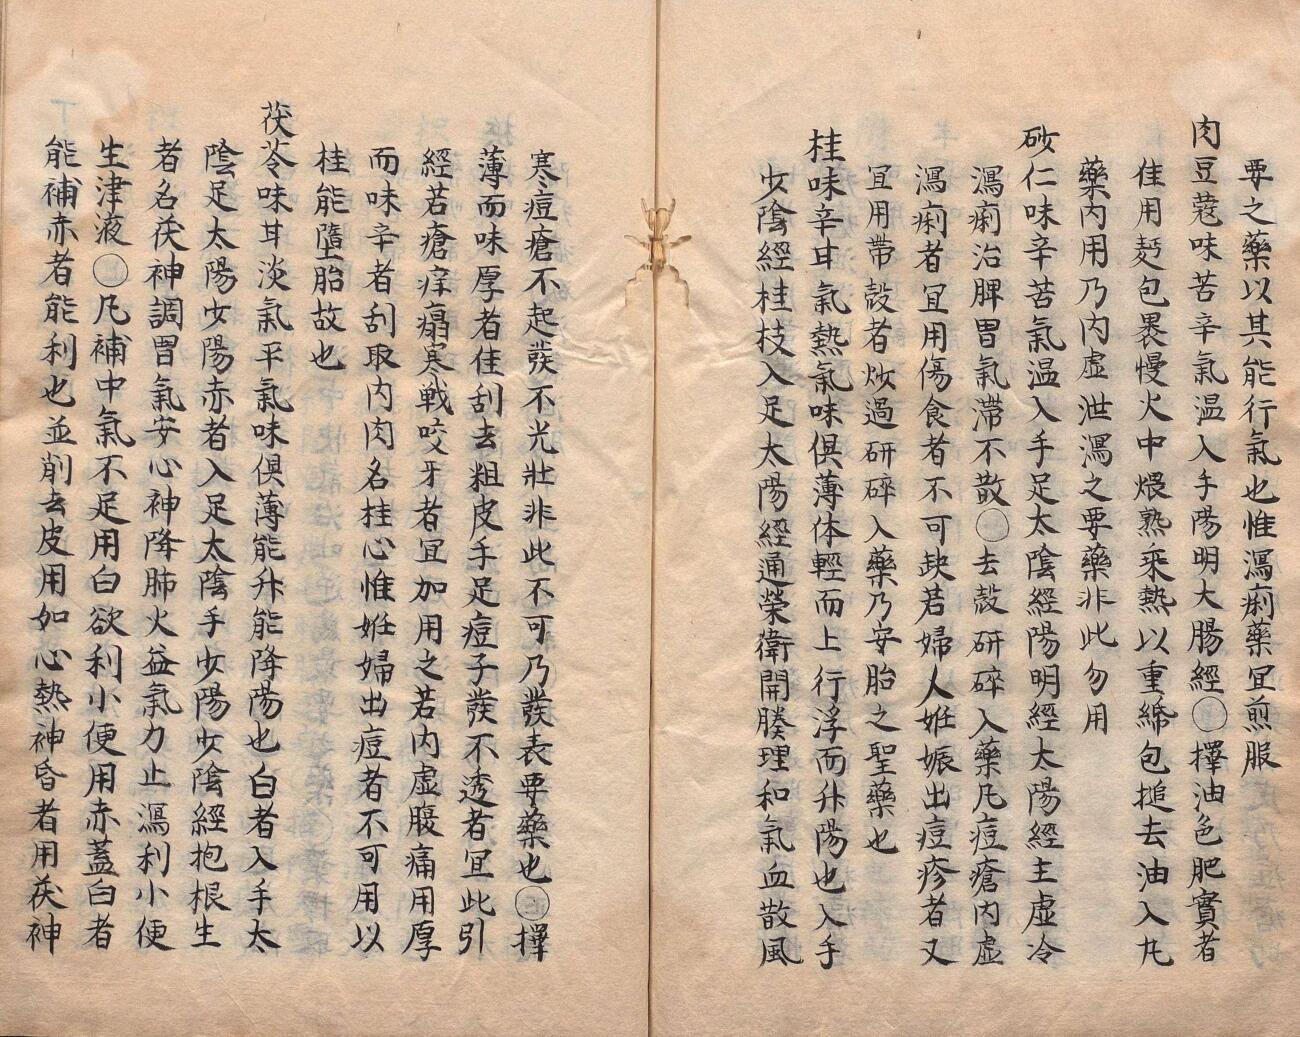 要之藥以其能行氣也惟瀉痢藥宜煎服
肉豆蔻味苦辛氣温入手陽明大腸經○擇油色肥實者
佳用麪包褁慢火中煨熟乘熱以重綿包搥去油入丸
藥内用乃内虛泄瀉之要藥非此勿用
砂仁味辛苦氣温入手足太陰經陽明經太陽經主虛冷
瀉痢治脾胃氣滯不散○去殼研碎入藥凡痘瘡内虛
瀉痢者宜用傷食者不可缺若婦人姙娠出痘疹者又
宜用帶殼者炒過研碎入藥乃安胎之聖藥也
桂味辛甘氣熱氣味俱薄体輕而上行浮而升陽也入手
少陰經桂枝入足太陽經通榮衛開腠理和氣血散風
寒痘瘡不起發不光壯非此不可乃發表要藥也○擇
薄而味厚者佳刮去粗皮手足痘子發不透者宜此引
經若瘡痒塌寒戰咬牙者宜加用之若内虛腹痛用厚
而味辛者刮取内肉名桂心惟姙婦出痘者不可用以
桂能墮胎故也
茯苓味甘淡氣平氣味俱薄能升能降陽也白者入手太
陰足太陽少陽赤者入足太陰手少陽少陰經抱根生
者名茯神調胃氣安心神降肺火益氣力止瀉利小便
生津液○凡補中氣不足用白欲利小便用赤蓋白者
能補赤者能利也並削去皮用如心熱神昏者用茯神